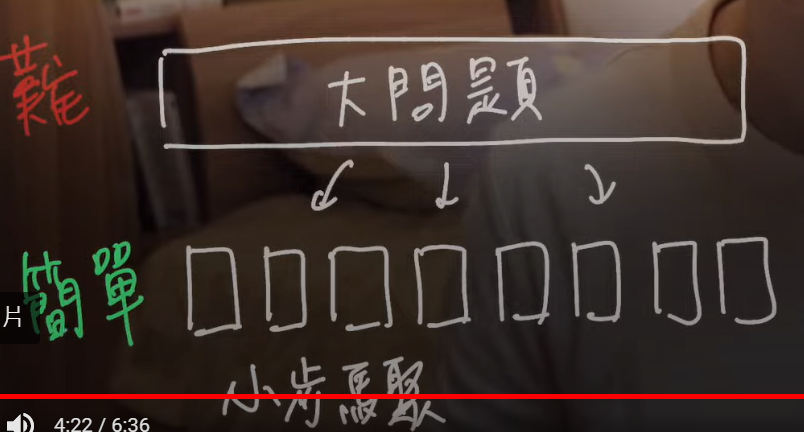 難
大問題
簡單
片
小步驟
4:22 / 6:36